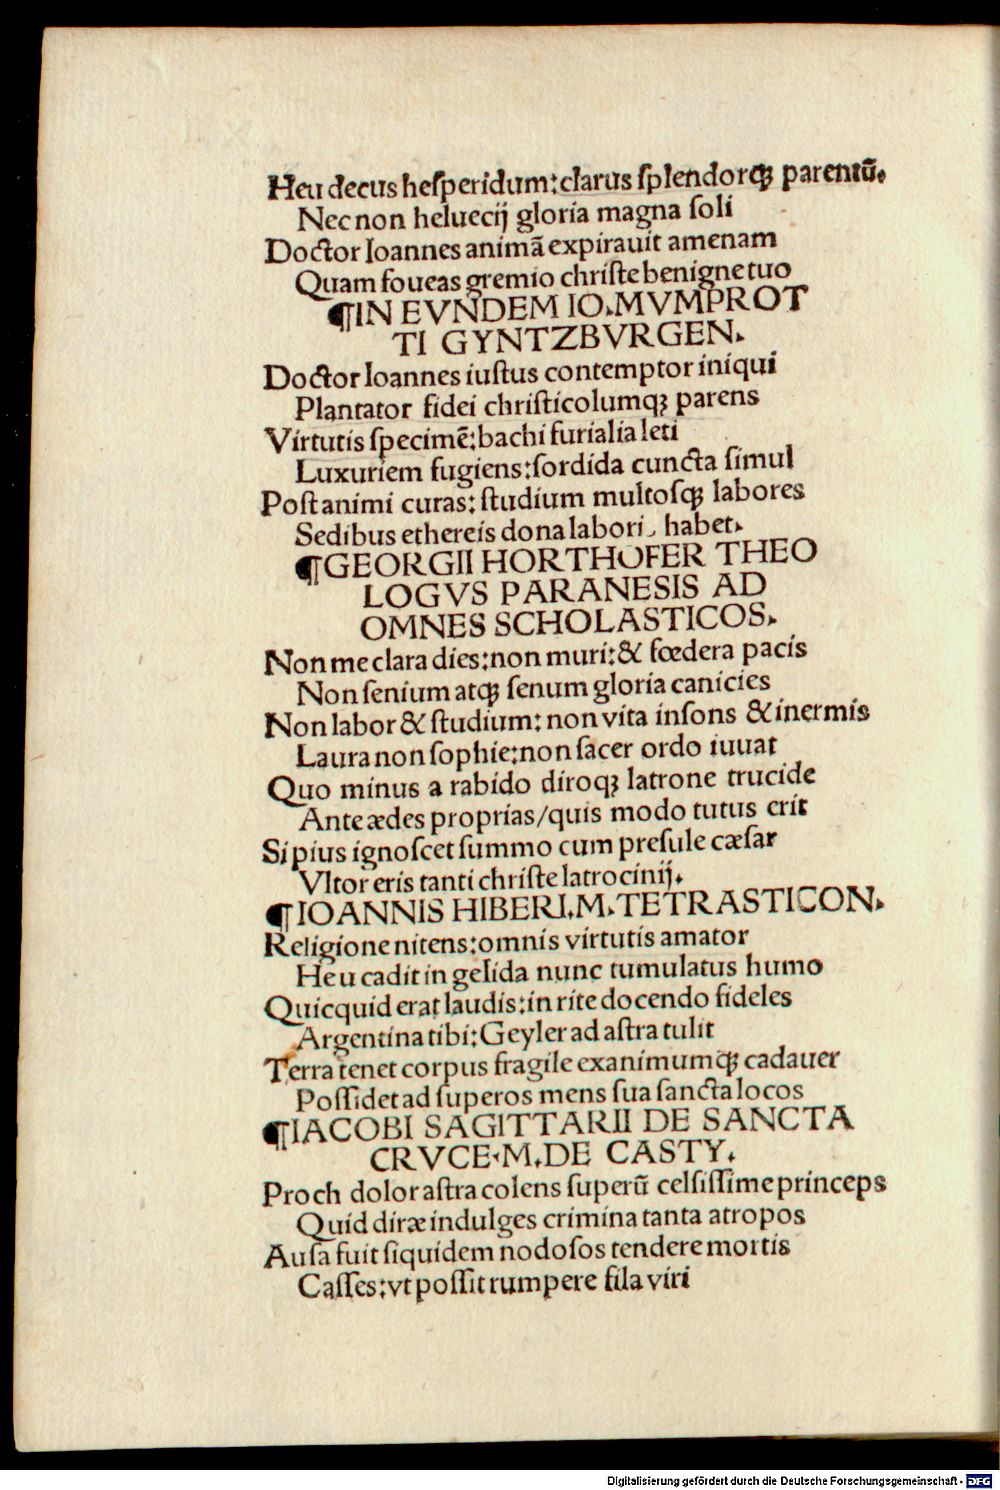 Heu decus heſperidum:clarus ſplendorqꝫ parentū.
Nec non heluecij gloria magna ſoli
Doctor Ioannes animā expirauit amenam
Quam foueas gremio chriſte benigne tuo
¶IN EVNDEM IO.MVMPROT
TI GYNTZBVRGEN.
Doctor Ioannes iuſtus contemptor iniqui
Plantator fidei chriſticolumqꝫ parens
Virtutis ſpecimē:bachi furialia leti
Luxuriem fugiens:ſordida cuncta ſimul
Poſt animi curas: ſtudium multoſqꝫ labores
Sedibus ethereis dona labori habet.
¶GEORGII HORTHOFER THEO
LOGVS PARANESIS AD
OMNES SCHOLASTICOS.
Non me clara dies:non muri:& fœdera pacis
Non ſenium atqꝫ ſenum gloria canicies
Non labor & ſtudium: non vita inſons & inermis
Laura non ſophie:non ſacer ordo iuuat
Quo minus a rabido diroqꝫ latrone trucide
Ante ædes proprias/quis modo tutus erit
Si pius ignoſcet ſummo cum preſule cæſar
Vltor eris tanti chriſte latrocinij.
¶IOANNIS HIBERI.M.TETRASTICON.
Religione nitens:omnis virtutis amator
Heu cadit in gelida nunc tumulatus humo
Quicquid erat laudis:in rite docendo fideles
Argentina tibi:Geyler ad aſtra tulit
Terra tenet corpus fragile exanimumqꝫ cadauer
Poſſidet ad ſuperos mens ſua ſancta locos
¶IACOBI SAGITTARII DE SANCTA
CRVCE.M.DE CASTY.
Proch dolor aſtra colens ſuperū celſiſſime princeps
Quid diræ indulges crimina tanta atropos
Auſa fuit ſiquidem nodoſos tendere mortis
Caſſes:vt poſſit rumpere fila viri
Digitalisierung gefördert durch die Deutsche Forschungsgemeinschaft - DFG